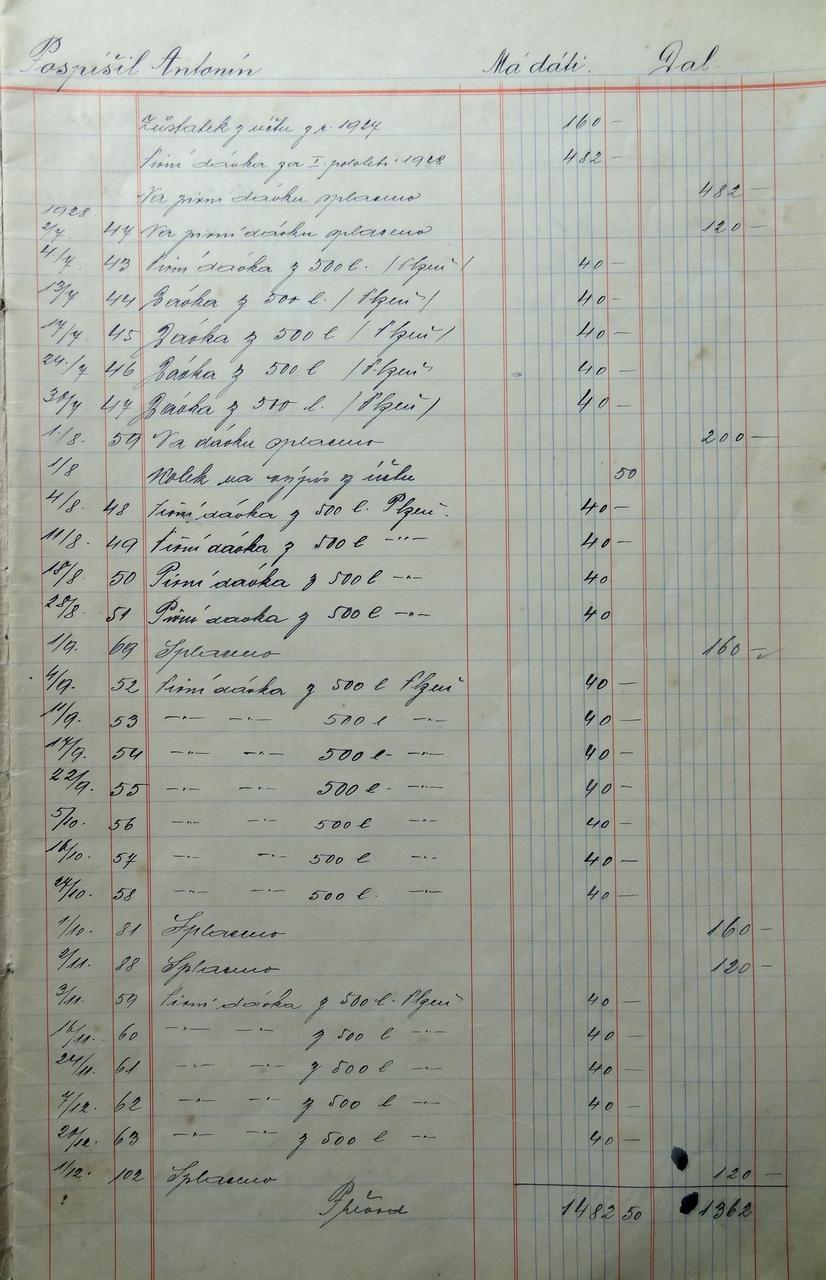 Pospíšil Antonín Má dáti. Dal.
Zůstatek z účtu z r. 1927 160 —
Pivní dávka za I. pololetí 1928 482 —
Na pivní dávku splaceno 482 —
1928
2/7 47 Na pivní dávku splaceno 120 —
4/7 43 Pivní dávka z 500 l. / Plzeň / 40 —
13/7 44 Dávka z 500 l. / Plzeň / 40 —
17/7 45 Dávka z 500 l / Plzeň / 40 —
24./7 46 Dávka z 500 l / Plzeň 40 —
30/7 47 Dávka z 500 l. / Plzeň / 40 —
1./8. 59 Na dávku splaceno 200 —
1/8 Kolek na výpis z účtu 50
4/8. 48 Pivní dávka z 500 l. Plzeň. 40 —
11/8. 49 Pivní dávka z 500 l —"— 40 —
18/8. 50 Pivní dávka z 500 l —"— 40
28/8. 51 Pivní dávka z 500 l —"— 40
1/9. 69 Splaceno 160 —
4/9. 52 Pivní dávka z 500 l Plzeň 40 —
11/9. 53 —"— —"— 500 l —"— 40 —
17/9. 54 —"— —"— 500 l —"— 40 —
22/9. 55 —"— —"— 500 l —"— 40 —
5/10. 56 —"— —"— 500 l —"— 40 —
16/10. 57 —"— —"— 500 l —"— 40 —
27/10. 58 —"— —"— 500 l. —"— 40 —
1/10. 81 Splaceno 160 —
2/11. 88 Splaceno 120 —
3/11. 59 Pivní dávka z 500 l. Plzeň 40 —
16/11. 60 —"— —"— z 500 l —"— 40 —
24/11. 61 —"— —"— z 500 l —"— 40 —
7/12. 62 —"— —"— z 500 l —"— 40 —
20/12. 63 —"— —"— z 500 l —"— 40 —
1/12. 102 Splaceno 120 —
Převod 1482 50 1362